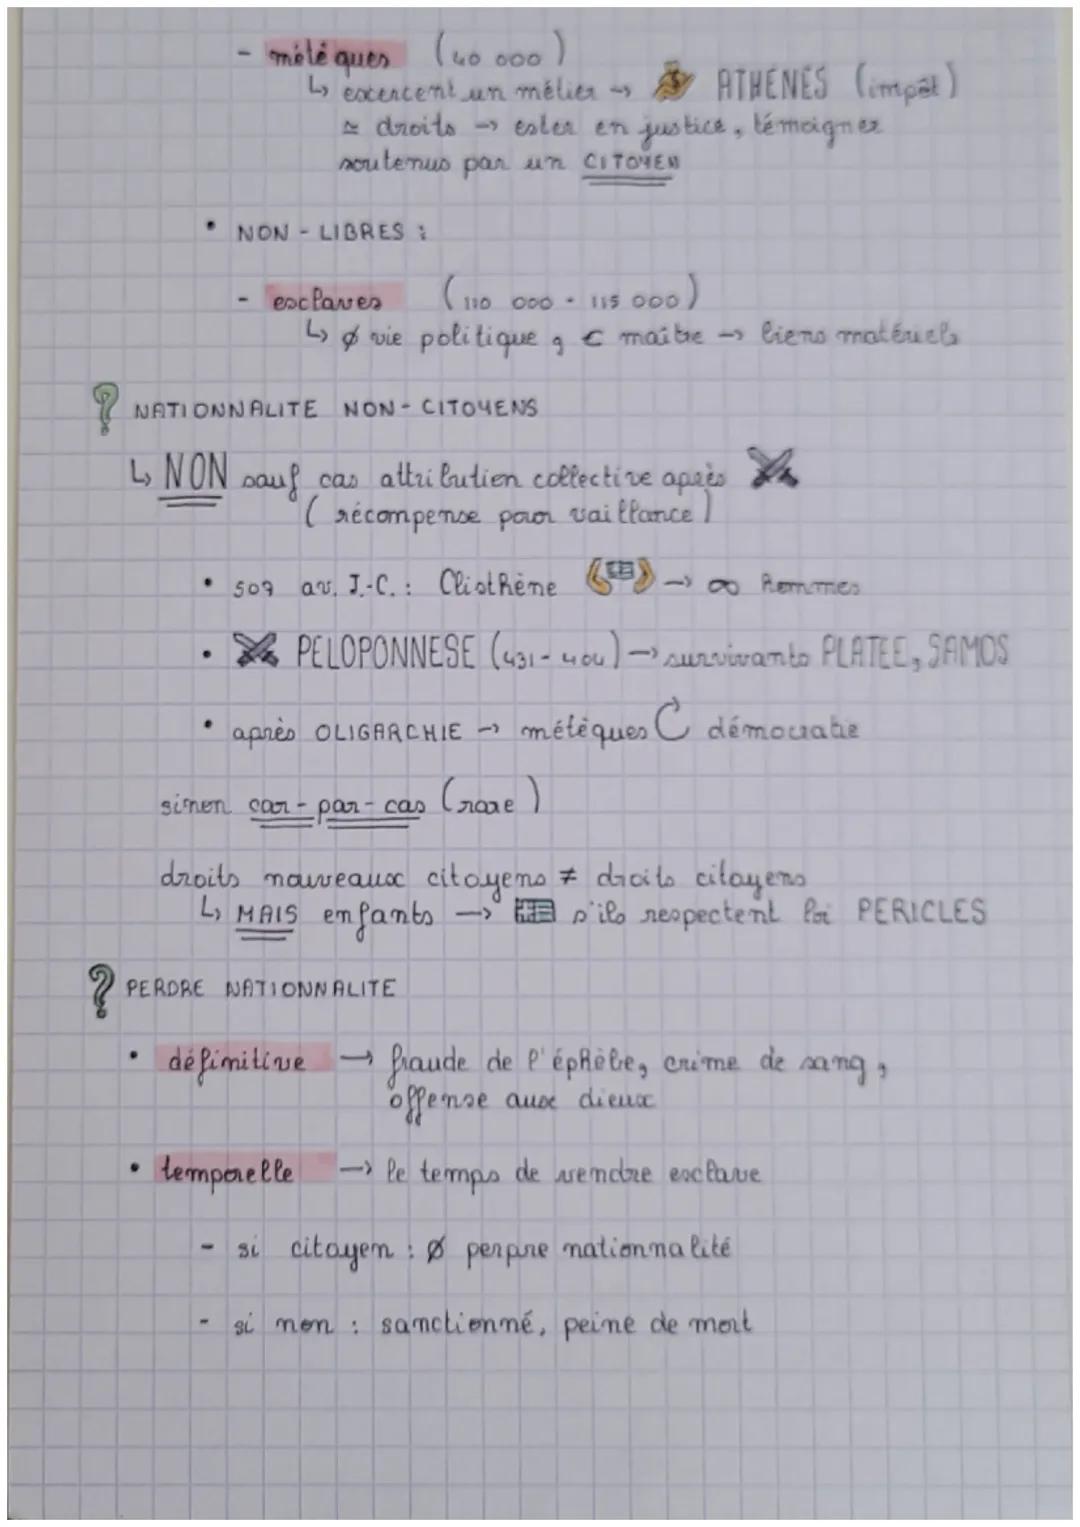 - métèques (40 000)
↳ excercent un métier → ATHENES (impôt)
≃ droits → ester en justice, témoigner
soutenus par un CITOYEN
• NON - LIBRES :
- esclaves (110 000 - 115 000)
↳ ø vie politique, € maître → liens matériels
? NATIONNALITE NON - CITOYENS
↳ NON sauf cas attribution collective après
(récompense pour vaillance)
• 507 av. J.-C. : Clisthène → ∞ hommes
• PELOPONNESE (431 - 404) → survivants PLATEE, SAMOS
• après OLIGARCHIE → métèques démocratie
sinon car - par - cas (rare)
droits nouveaux citoyens ≠ droits citoyens
↳ MAIS enfants → s'ils respectent loi PERICLES
? PERDRE NATIONNALITE
• définitive → fraude de l'éphèbe, crime de sang,
offense aux dieux
• temporelle → le temps de vendre esclave
- si citoyen : ø perpre nationnalité
- si non : sanctionné, peine de mort